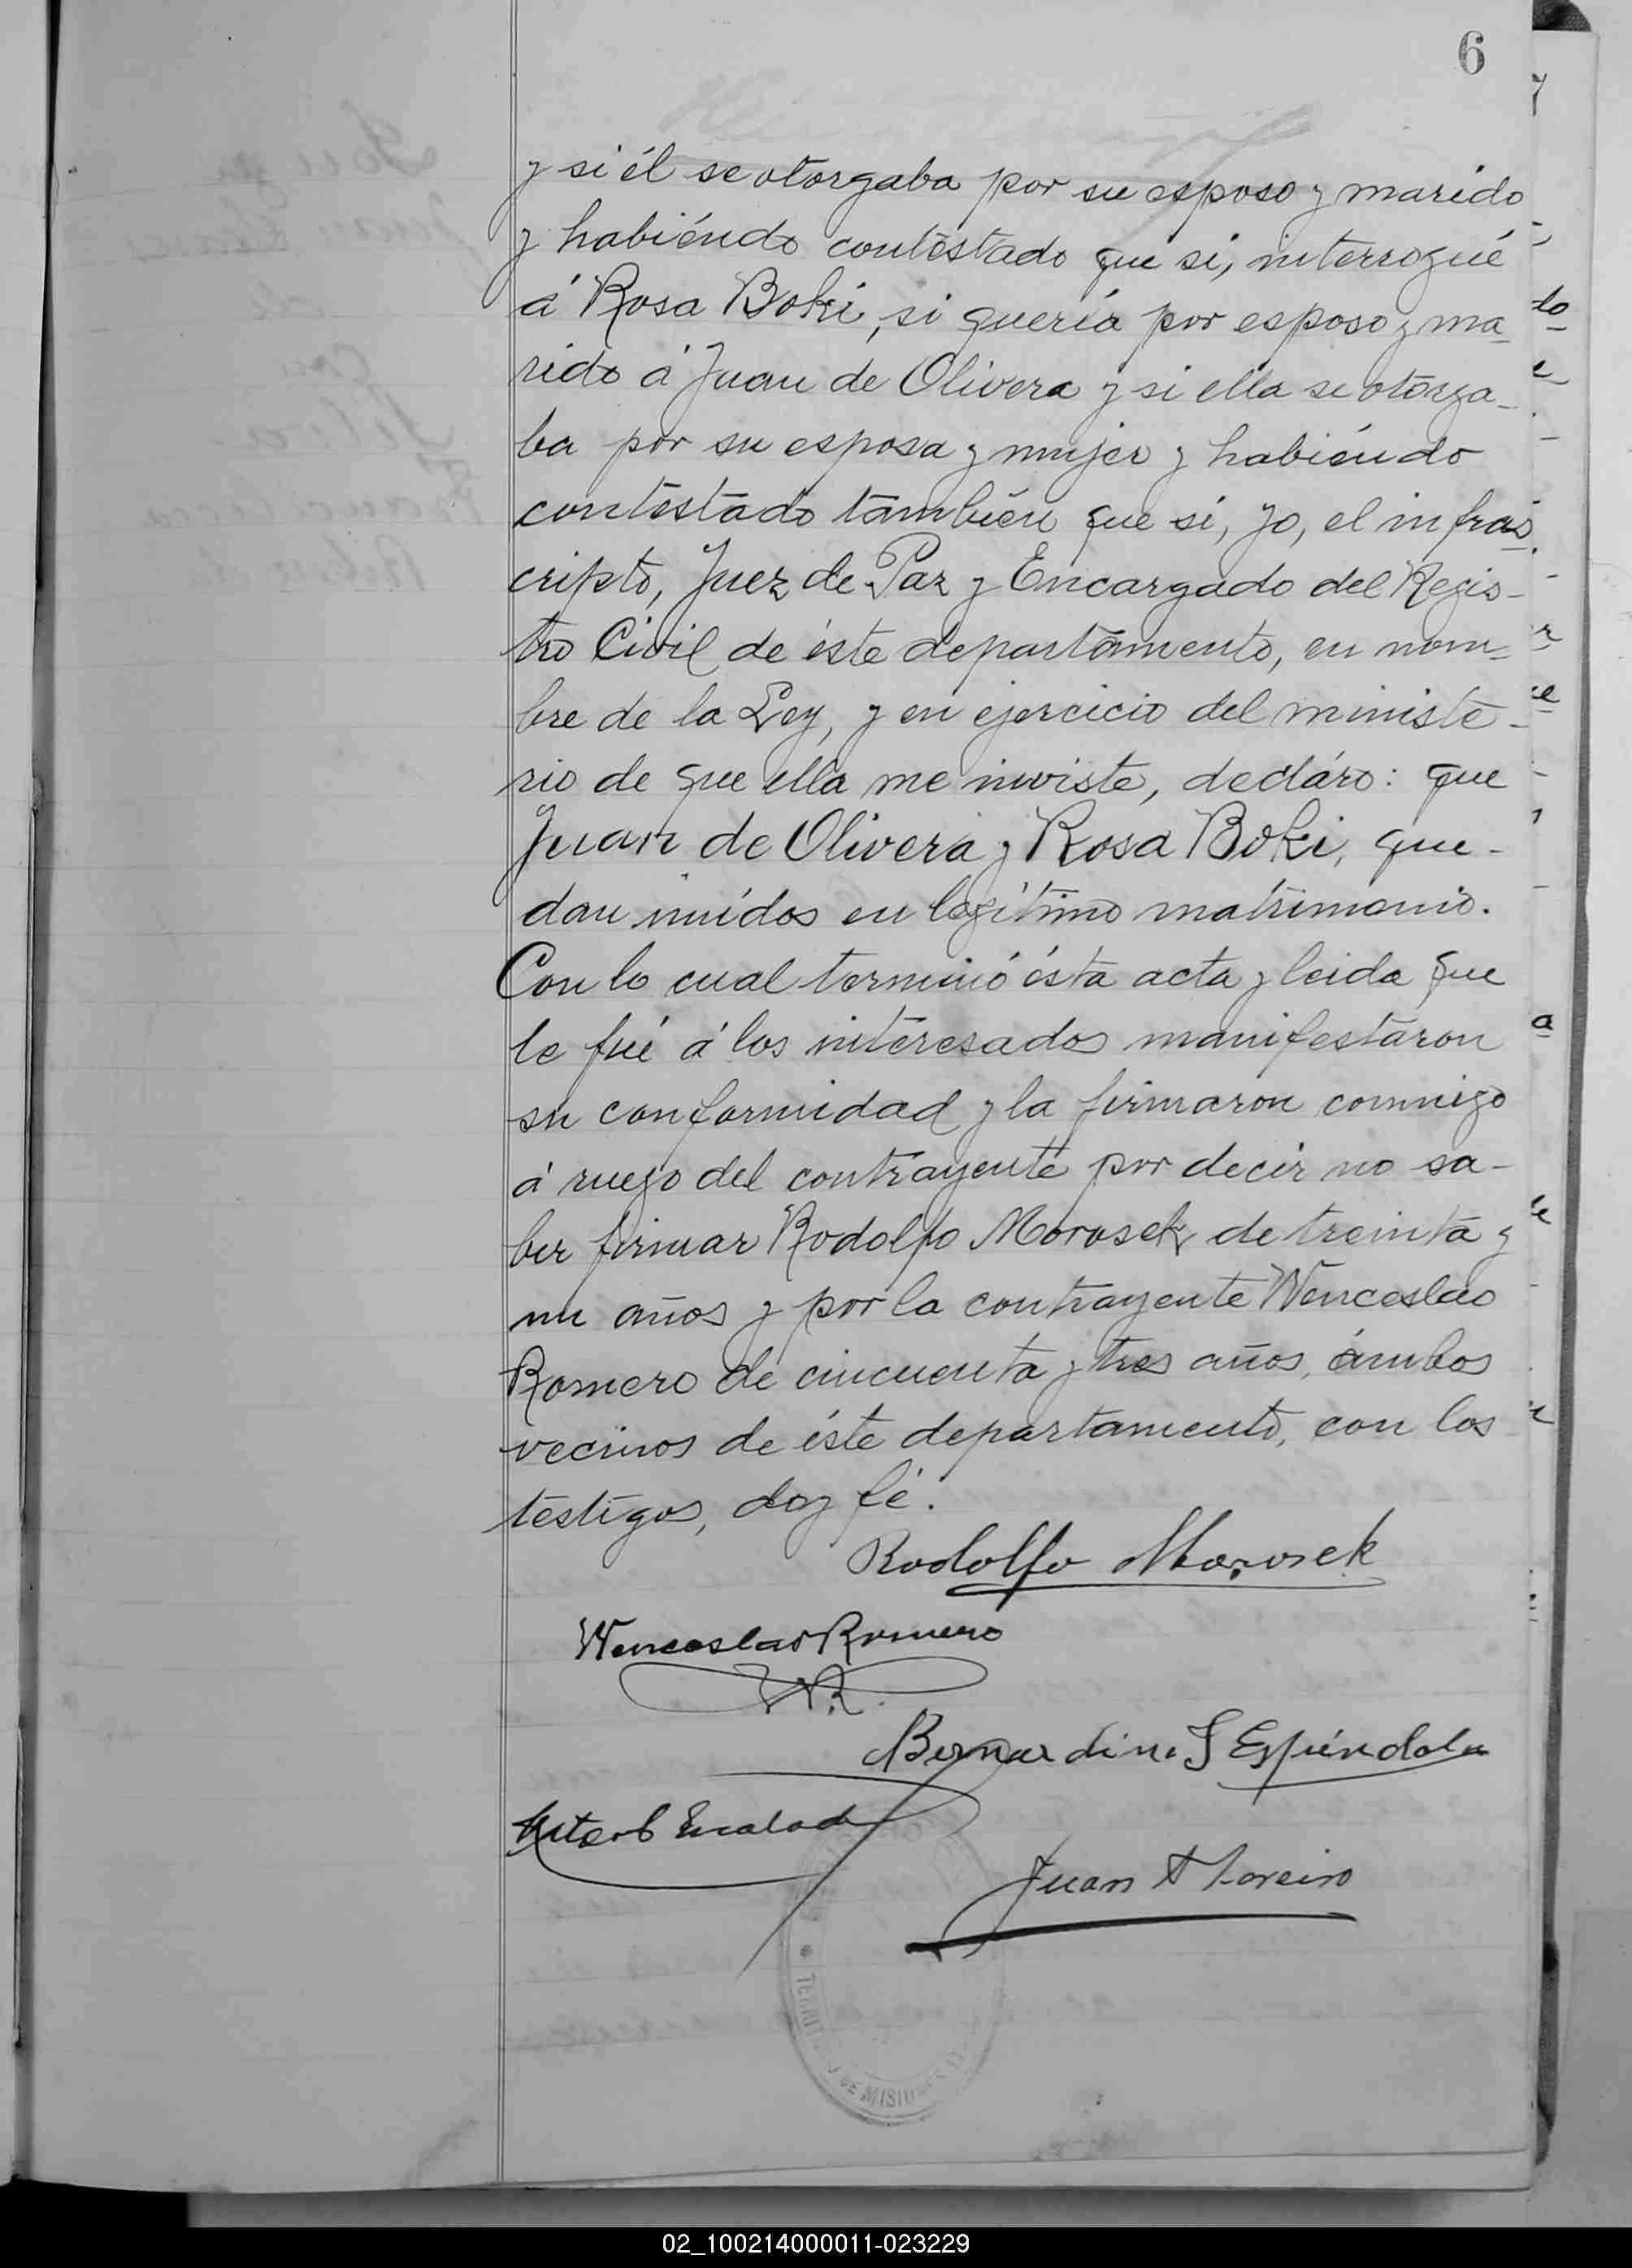 6
y si él se otorgaba por su esposo y marido
y habiéndo contestado que si, interrogué
á Rosa Boki, si quería por esposo y ma
rido á Juan de Olivera y si ella se otorga-
ba por su esposa y mujer y habiéndo
contestado también que si, yo, el infras
cripto, Juez de Paz y Encargado del Regis-
tro Civil de éste departamento, en nom-
bre de la Ley, y en ejercicio del ministe-
rio de que ella me inviste, decláro: que
Juan de Olivera y Rosa Boki, que-
dan unídos en legítimo matrimonio.
Con lo cual terminó ésta acta y leida que
le fué á los interesados manifestaron
su conformidad y la firmaron conmigo
á ruego del contrayente por decir no sa-
ber firmar Rodolfo Morosek de treinta y
un años y por la contrayente Wenceslao
Romero de cincuenta y tres años, ámbos
vecinos de éste departamento, con los
testigos, doy fé.
Rodolfo Morosek
Wenceslao Romero
WR.
Bernardino S Espíndola
Escalada
Juan Moreiro
DE MISIONES
02_100214000011-023229